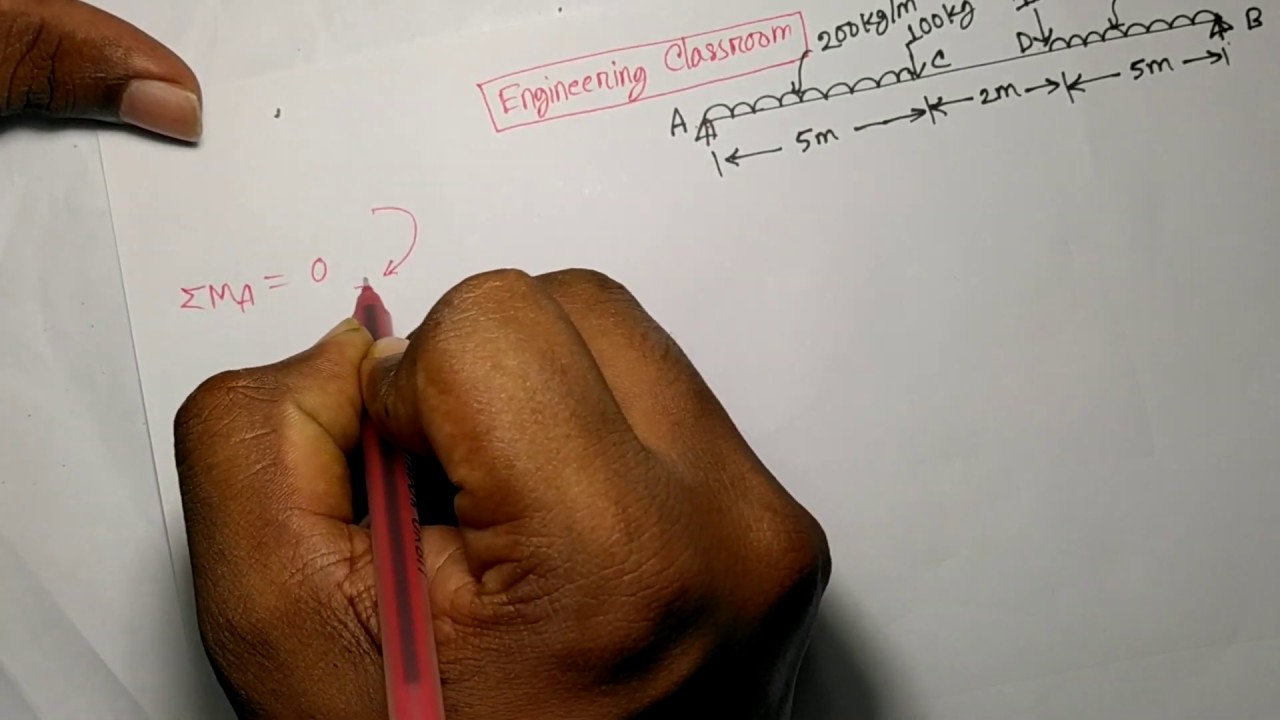 Engineering Classroom
200kg/m
100kg
A
C
D
B
5m
2m
5m
ΣMA = 0